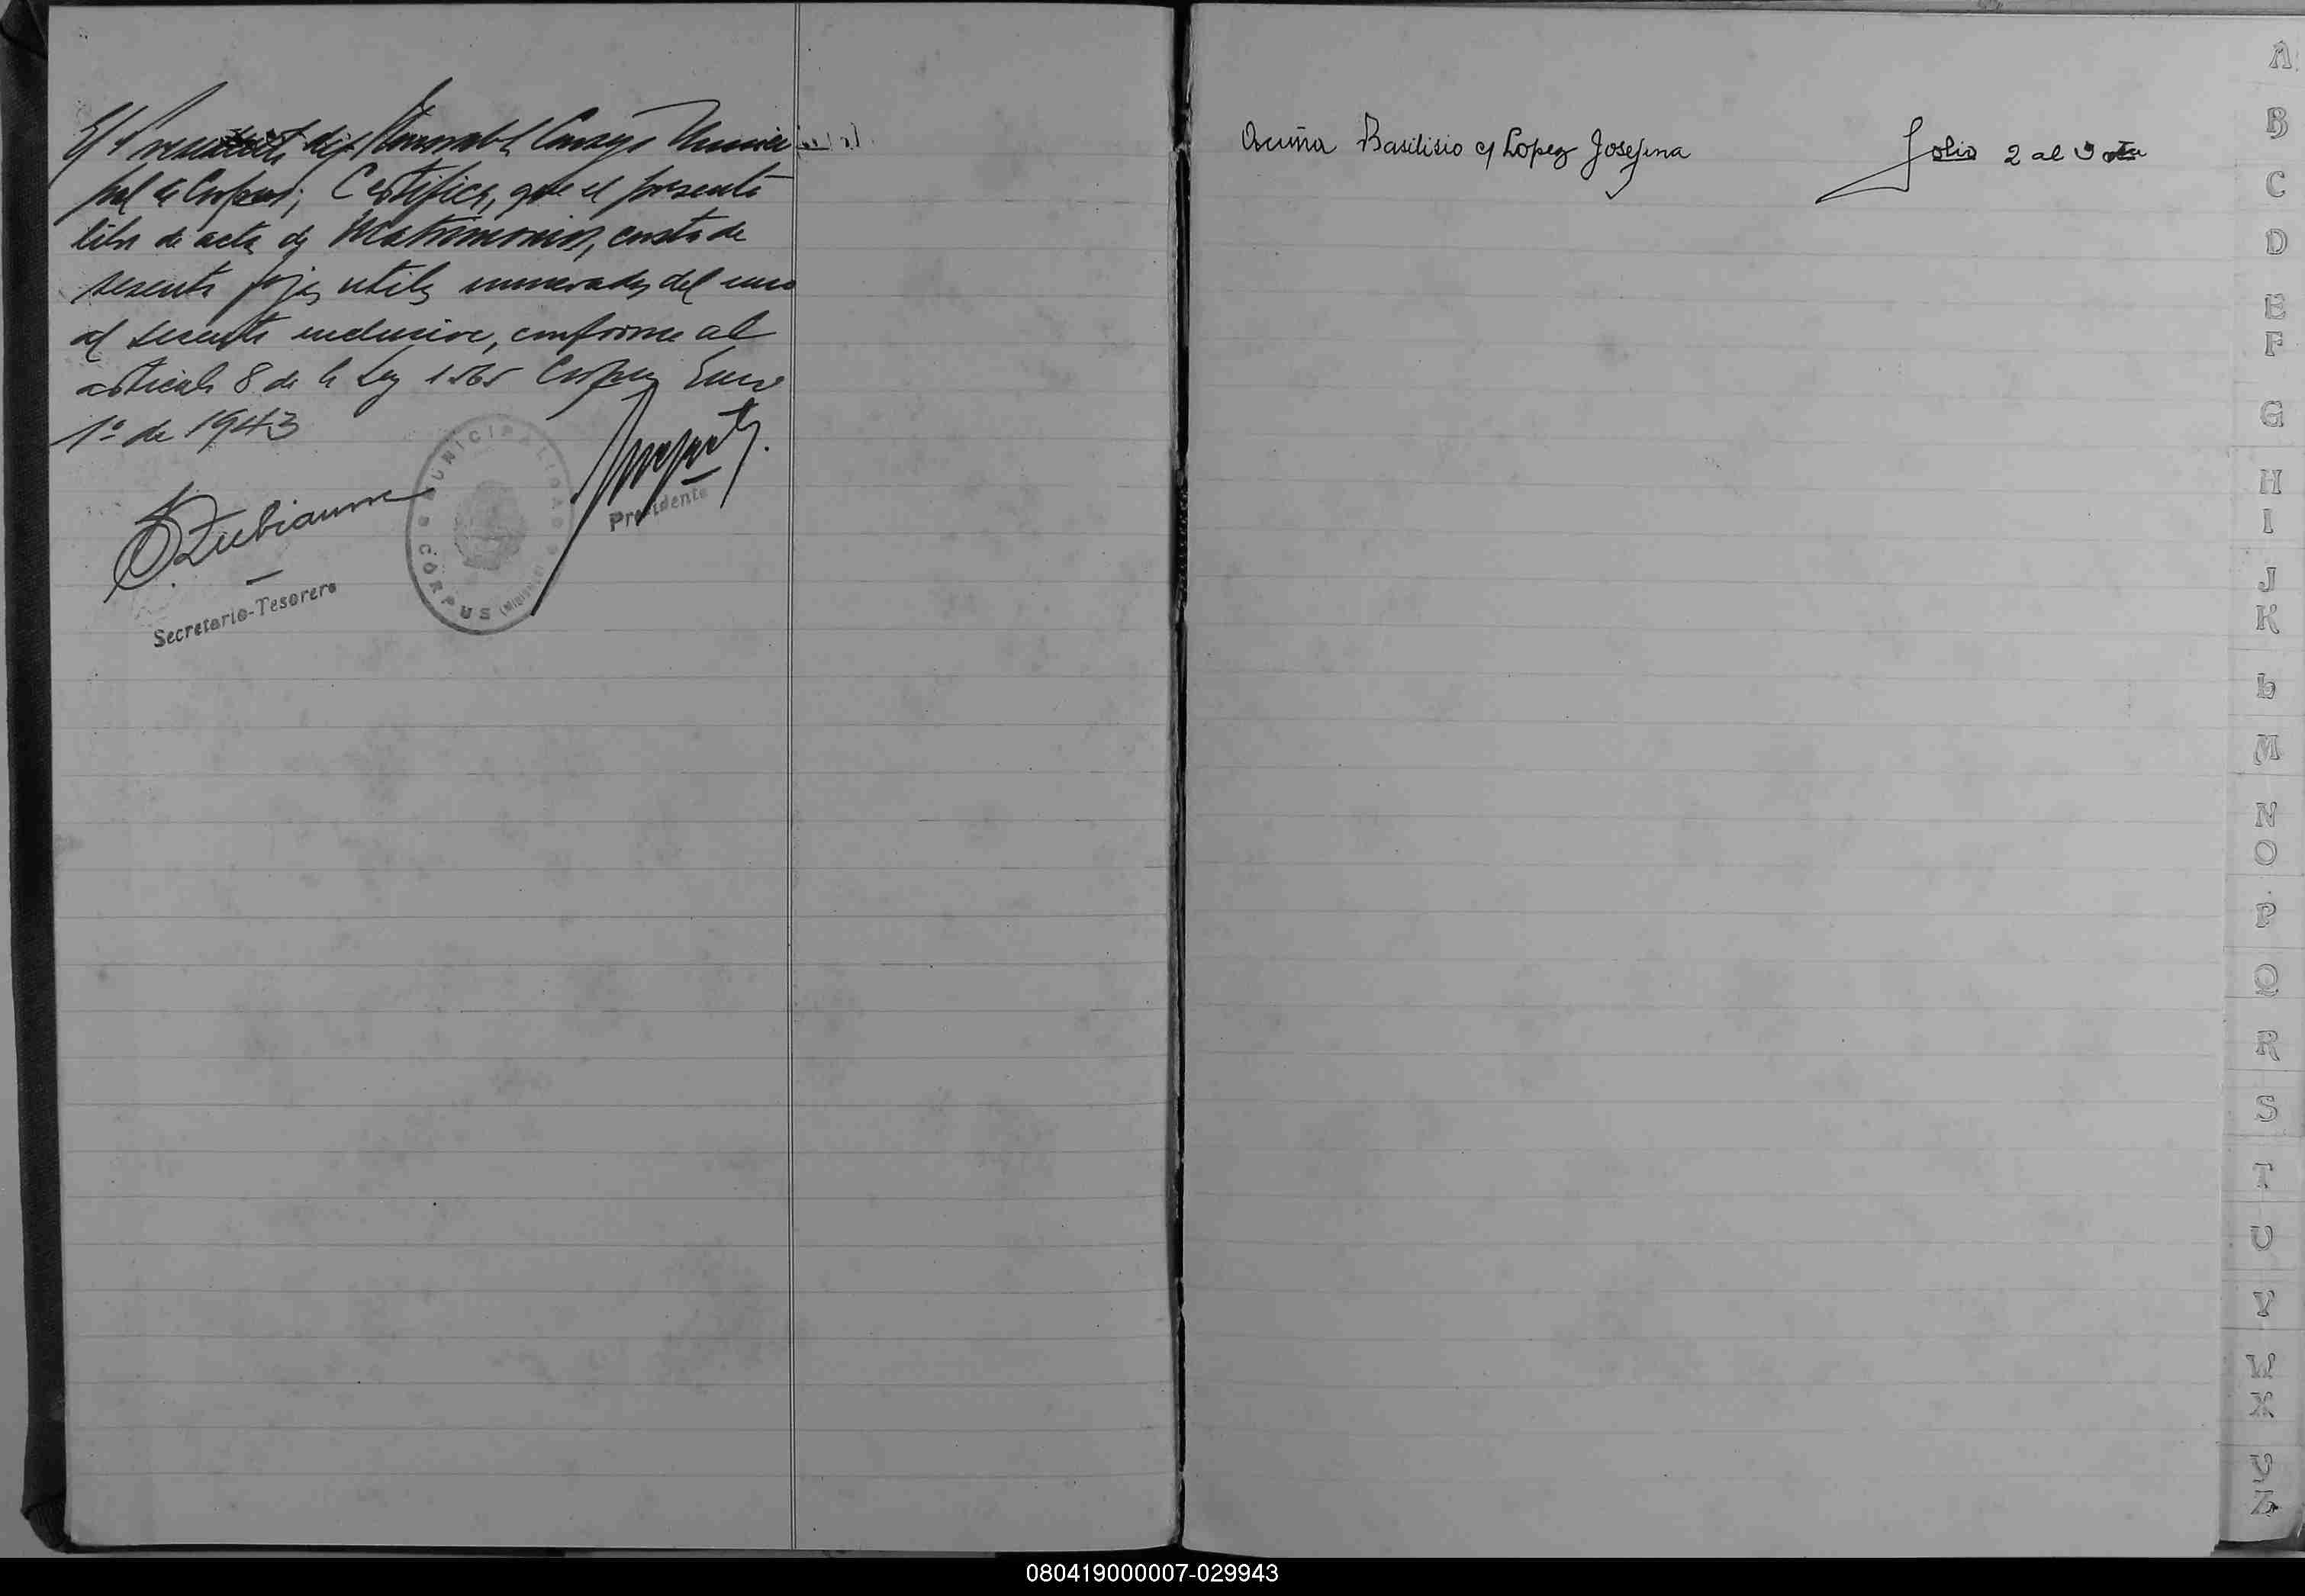 El Presidente del Honorable Consejo Munici
pal de Corpus; Certifica, que el presente
libro de acta de Matrimonios, consta de
sesenta fojas utiles numeradas del uno
al sesenta inclusive, conforme al
articulo 8 de la Ley 1565 Corpus Enero
1º de 1943
Presidente
MUNICIPALIDAD DE CORPUS (MISIONES)
Secretario-Tesorero
Acuña Basilisio c/ Lopez Josefina Folio 2 al
A
B
C
D
E
F
G
H
I
J
K
L
M
N
O
P
Q
R
S
T
U
V
W
X
Y
Z
080419000007-029943